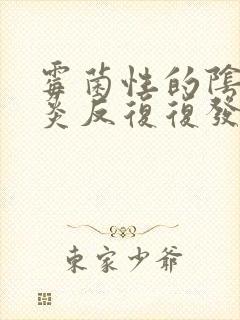 霉菌性的陰
炎反復復發
東家少爺